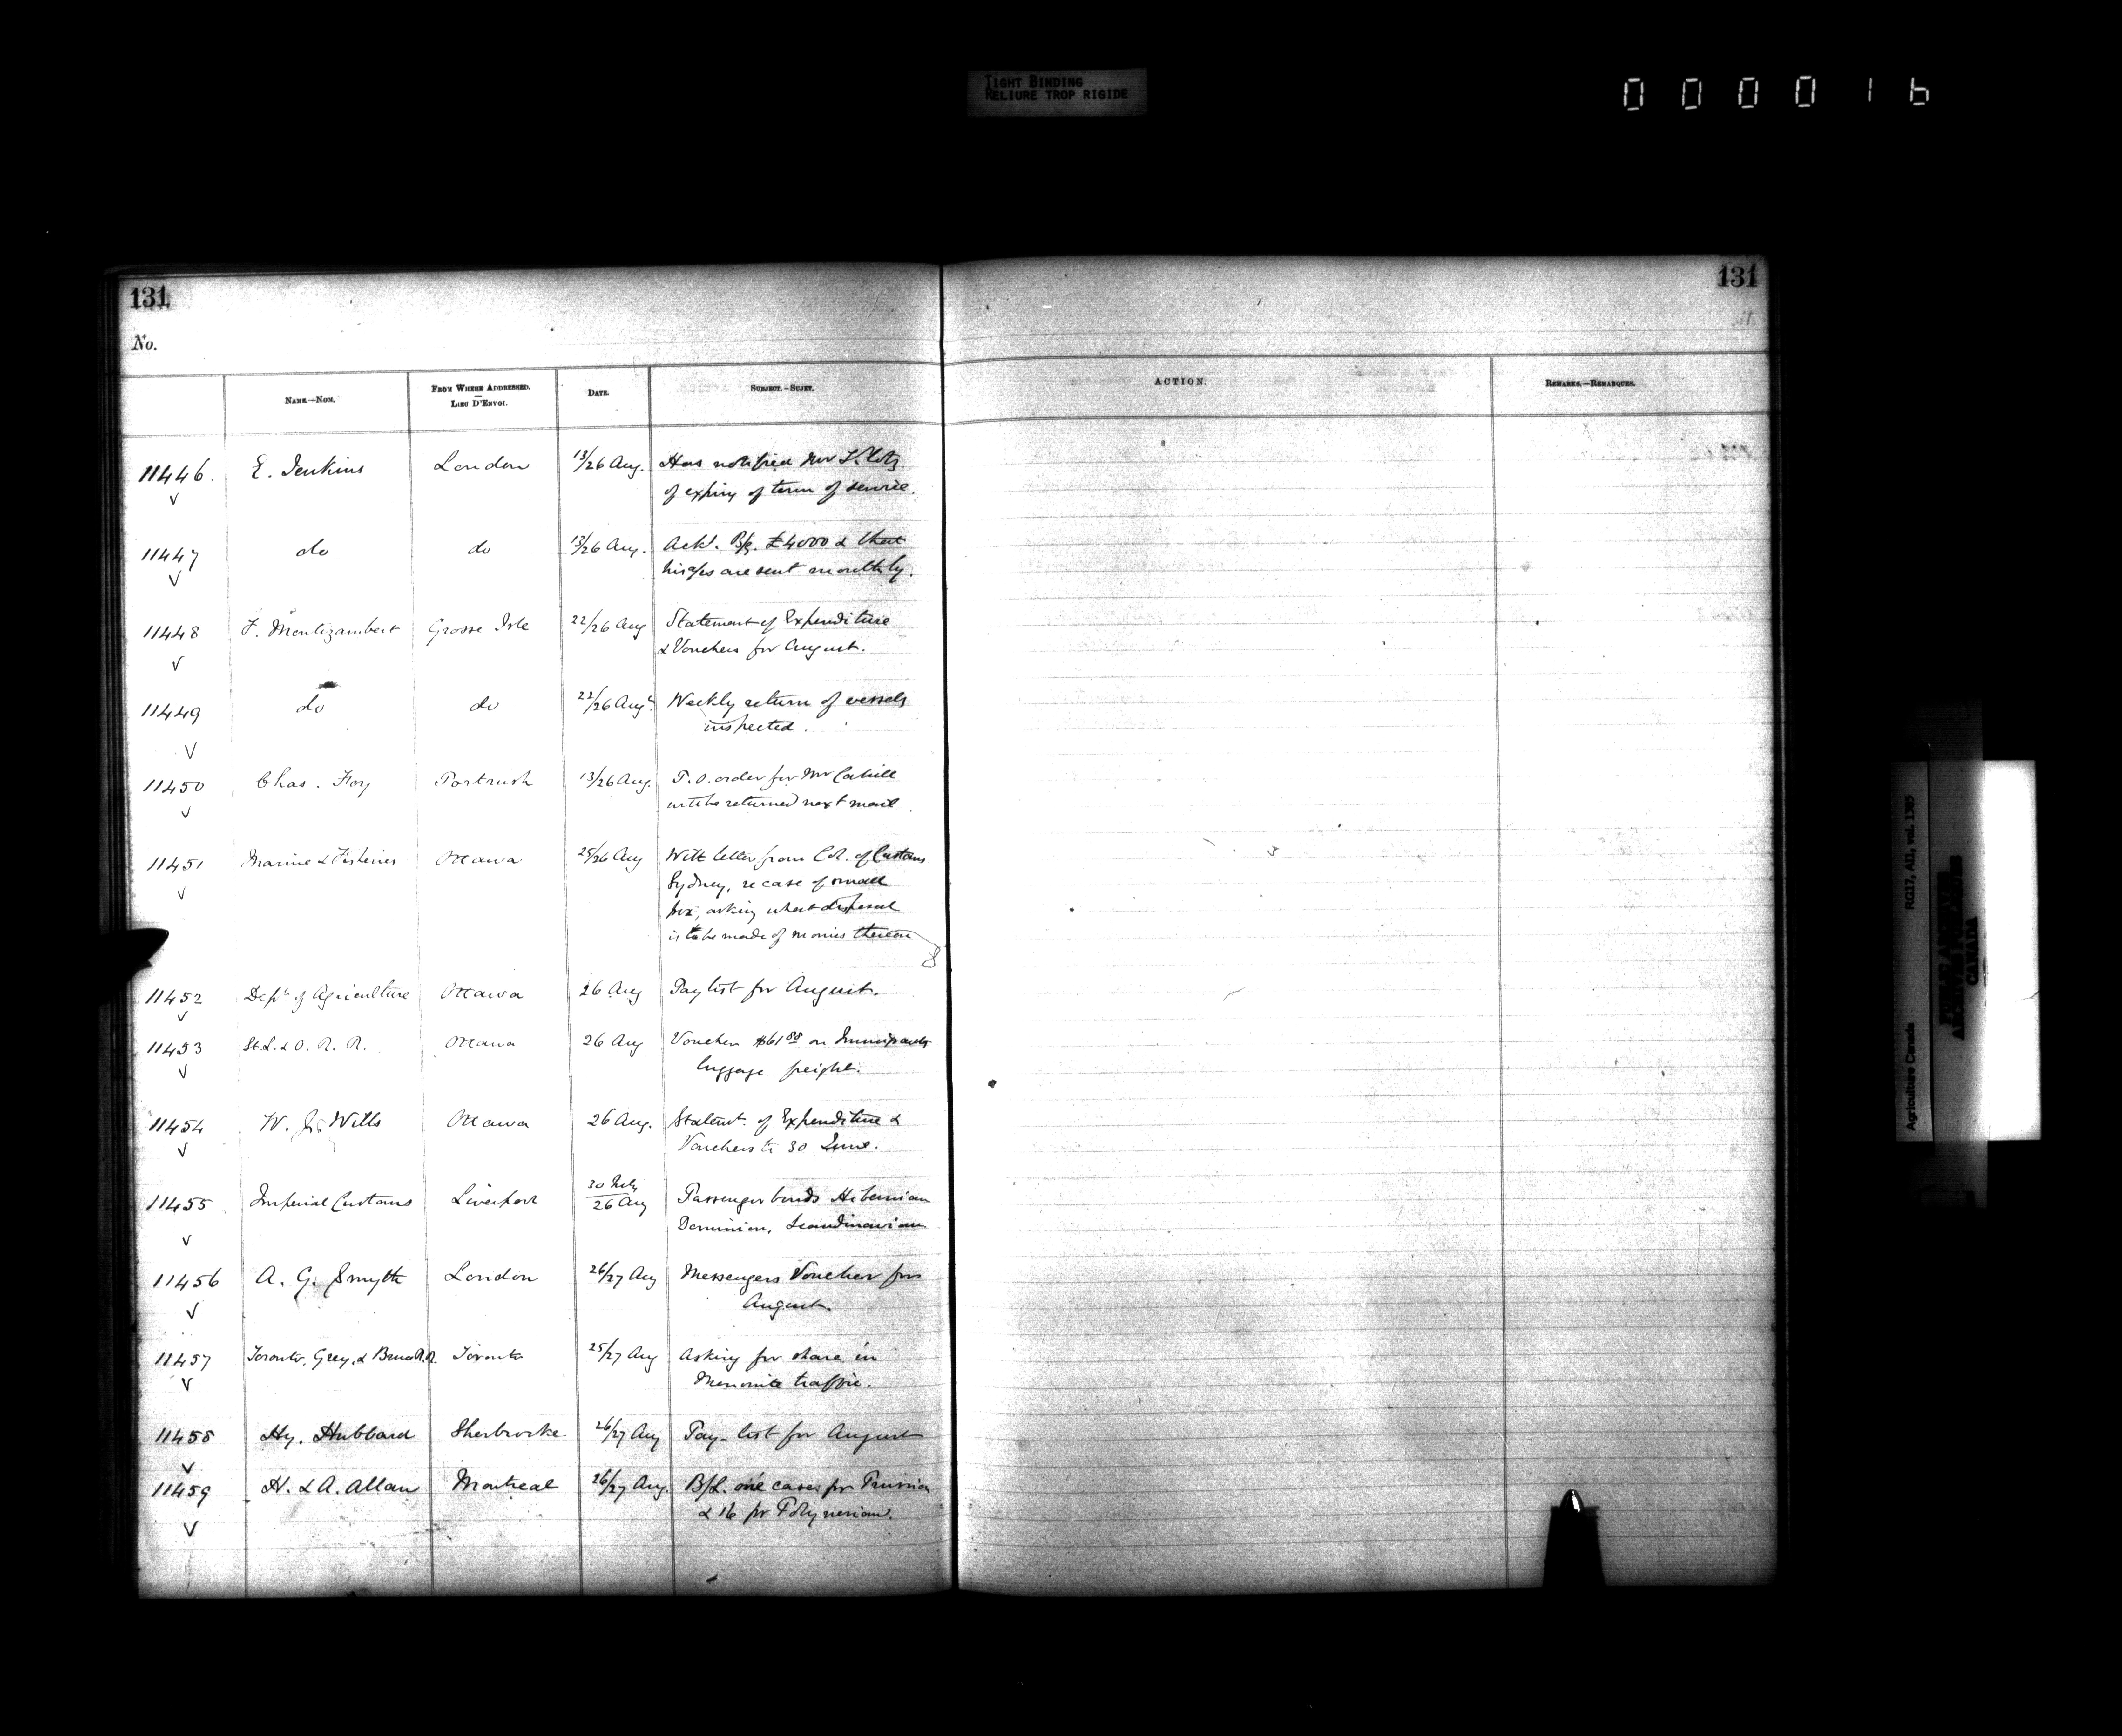 TIGHT BINDING
RELIURE TROP RIGIDE
0 0 0 0 1 6
131
131
No.
NAME.—NOM.
FROM WHERE ADDRESSED.
LIEU D'ENVOI.
DATE.
SUBJECT.—SUJET.
ACTION.
REMARKS.—REMARQUES.
11446. E. Jenkins London 13/26 Aug. Has notified Mr
of expiry of term of service.
11447 do do 13/26 Aug. Ackl. B/E. £4000 & that
his a/cs are sent monthly.
11448 F. Montizambert Grosse Isle 22/26 Aug Statement of Expenditure
& Vouchers for August.
11449 do do 22/26 Aug Weekly return of vessels
inspected.
11450 Chas. Foy Portrush 13/26 Aug. P.O. order for Mr Cahill
will be returned next mail
11451 Marine & Fisheries Ottawa 25/26 Aug With letter from Col. of Customs
Sydney, re case of small
pox, asking what disposal
is to be made of monies thereon
11452 Dept. of Agriculture Ottawa 26 Aug Pay list for August.
11453 St. L. & O. R. R. Ottawa 26 Aug Voucher $61 88 on Immigrants
luggage freight.
11454 W. J. Wills Ottawa 26 Aug. Statemt. of Expenditure &
Vouchers to 30 June.
11455 Imperial Customs Liverpool 30 July
26 Aug Passenger bonds Hibernian
Dominion, Scandinavian
11456 A. G. Smyth London 26/27 Aug Messengers Voucher for
August.
11457 Toronto, Grey, & Bruce R.R. Toronto 25/27 Aug Asking for share in
Menonite traffic.
11458 Hy. Hubbard Sherbrooke 26/27 Aug Pay-list for August
11459 H. & A. Allan Montreal 26/27 Aug. B/L. one case pr Prussian
& 16 pr Polynesian.
Agriculture Canada RG17, AII, vol. 1385
PUBLIC ARCHIVES
ARCHIVES PUBLIQUES
CANADA